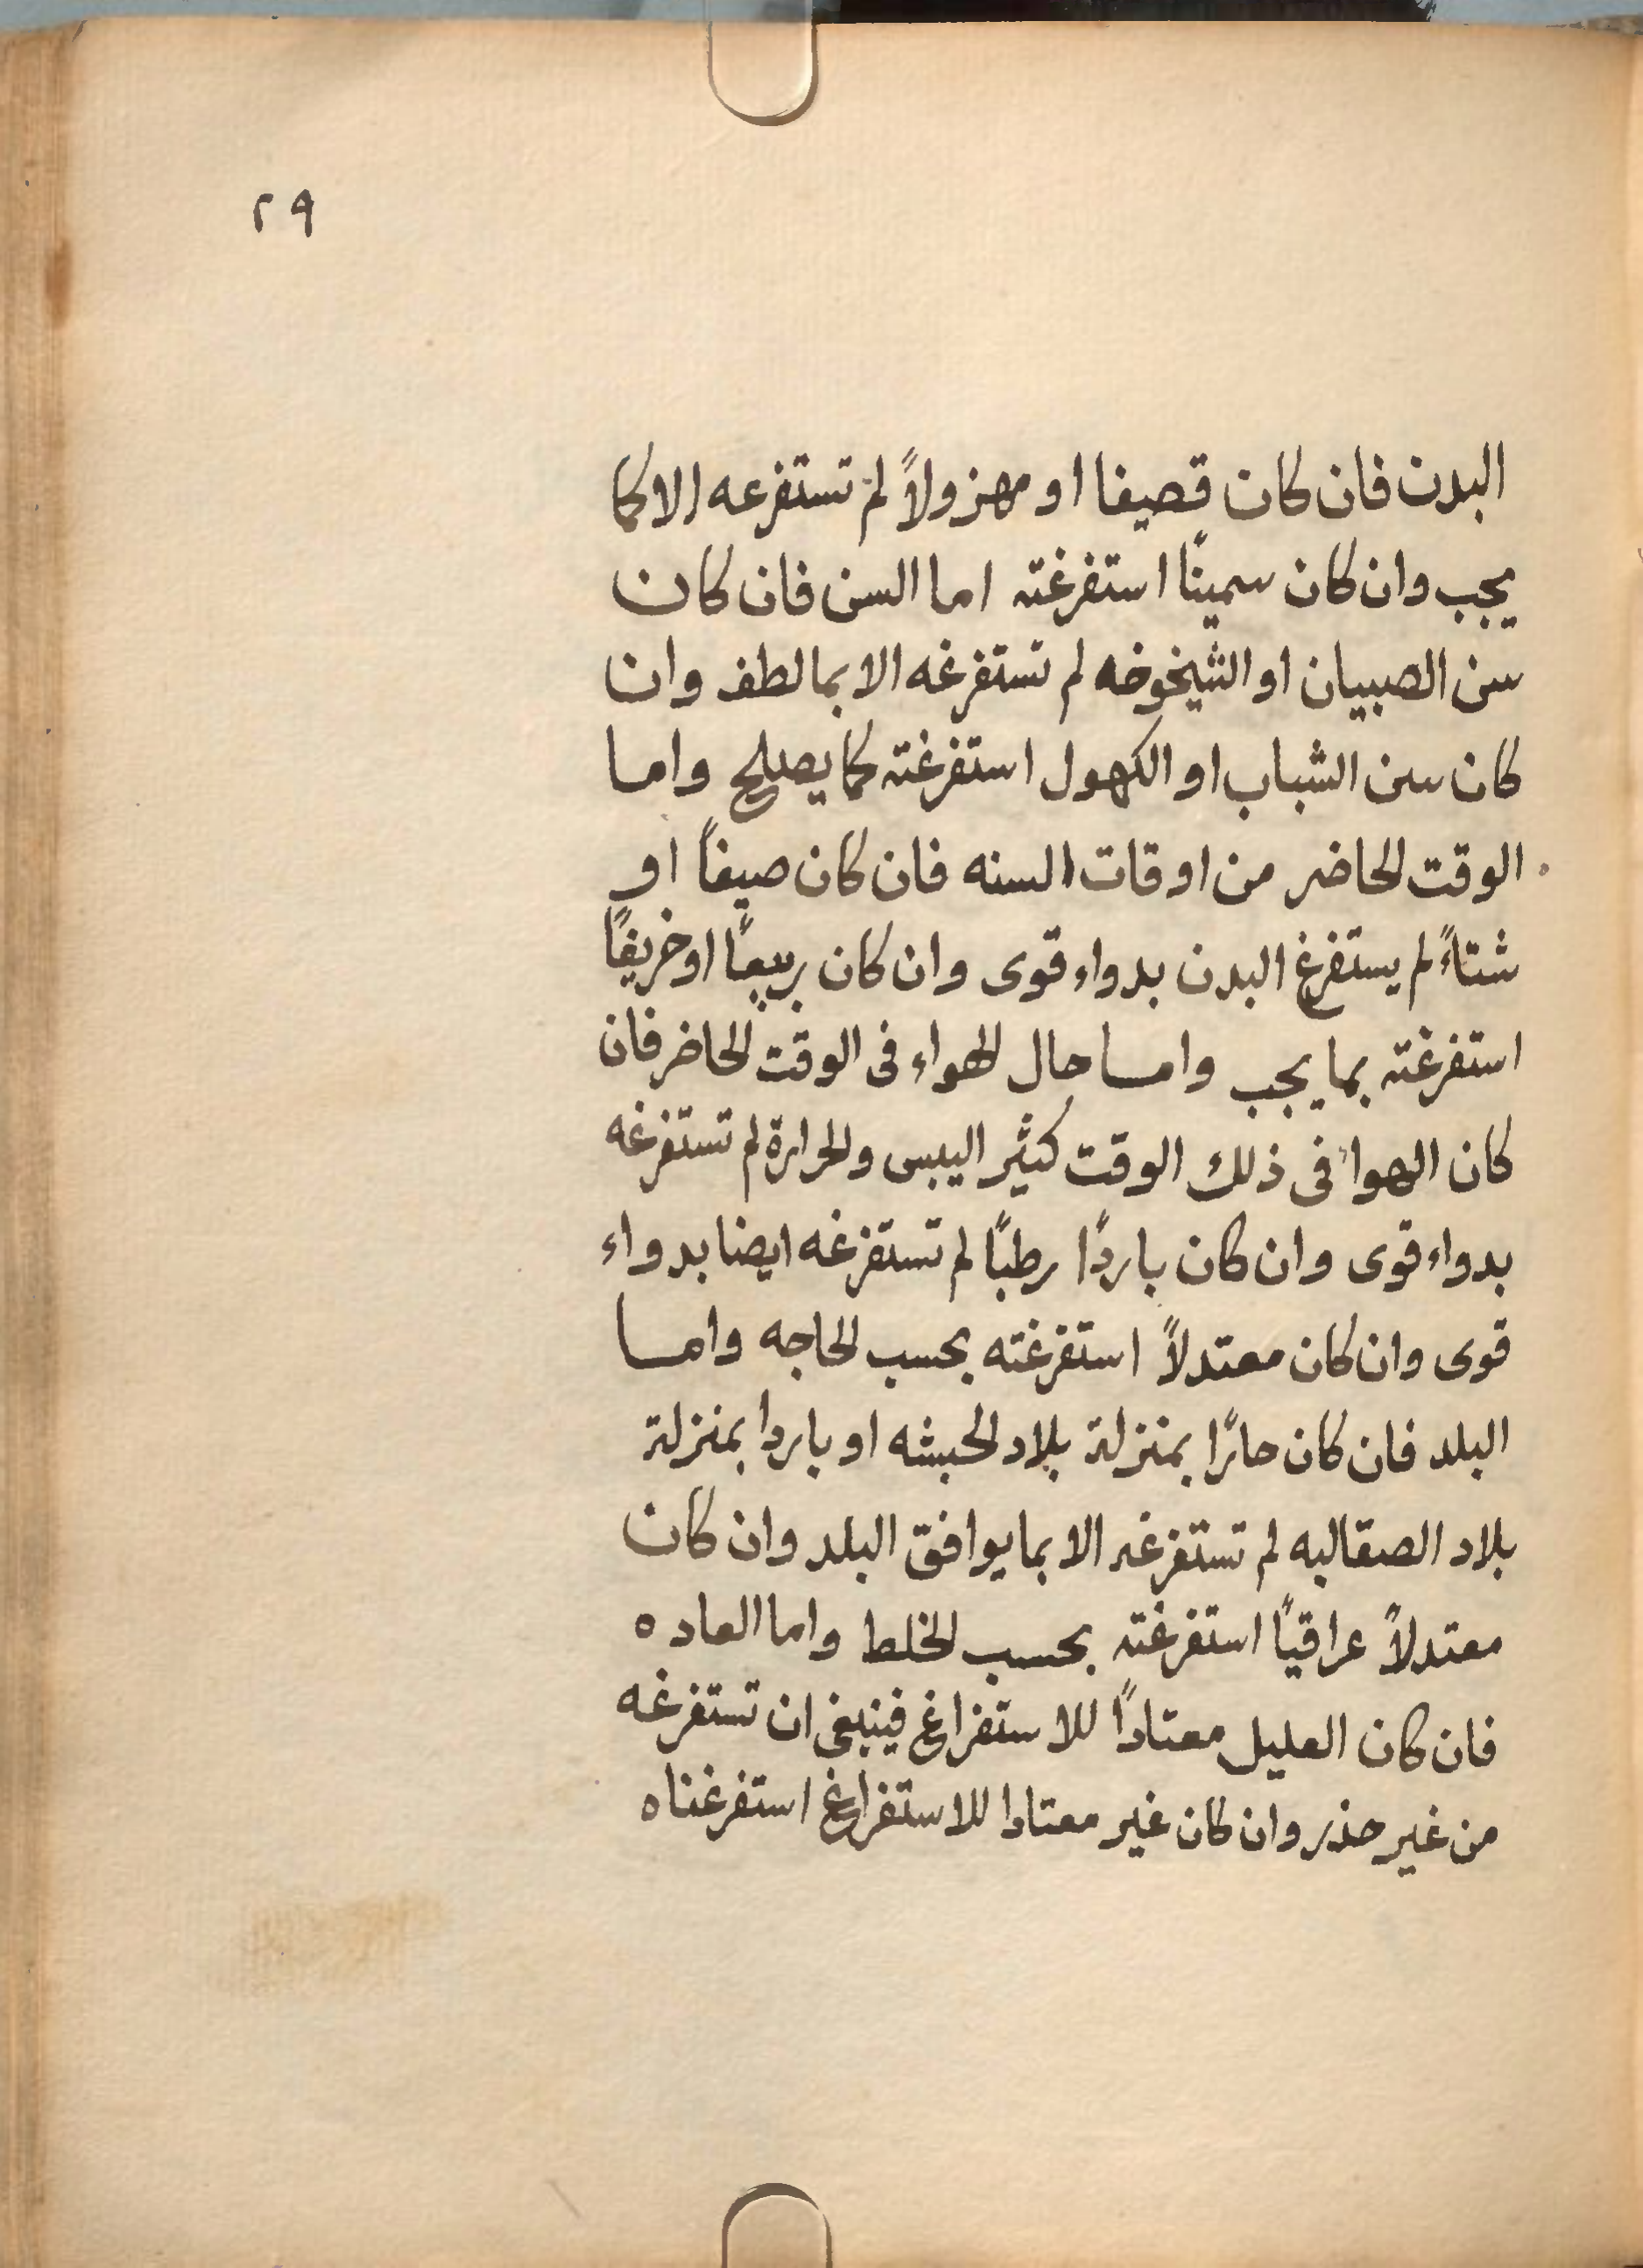 ٢٩
البدن فان كان قصيفا او مهزولاً لم تستفرعه الا كما
يجب وان كان سمينًا استفرغته اما السن فان كان
سن الصبيان او الشيخوخه لم تستفرغه الا بما لطف وان
كان سن الشباب او الكهول استفرغته كما يصلح واما
الوقت الحاضر من اوقات السنه فان كان صيفاً او
شتاءً لم يستفرغ البدن بدواء قوى وان كان ربيعًا او خريفًا
استفرغته بما يجب واما حال الهواء فى الوقت الحاضر فان
كان الهواء فى ذلك الوقت كثير اليبس والحرارة لم تستفرغه
بدواء قوى وان كان باردًا رطبًا لم تستفرغه ايضا بدواء
قوى وان كان معتدلاً استفرغته بحسب الحاجه واما
البلد فان كان حارًا بمنزلة بلاد الحبشه او باردا بمنزلة
بلاد الصقالبه لم تستفرغه الا بما يوافق البلد وان كان
معتدلاً عراقيًا استفرغته بحسب الخلط واما العاده
فان كان العليل معتادًا للاستفراغ فينبغى ان تستفرغه
من غير حذر وان كان غير معتادا للاستفراغ استفرغناه